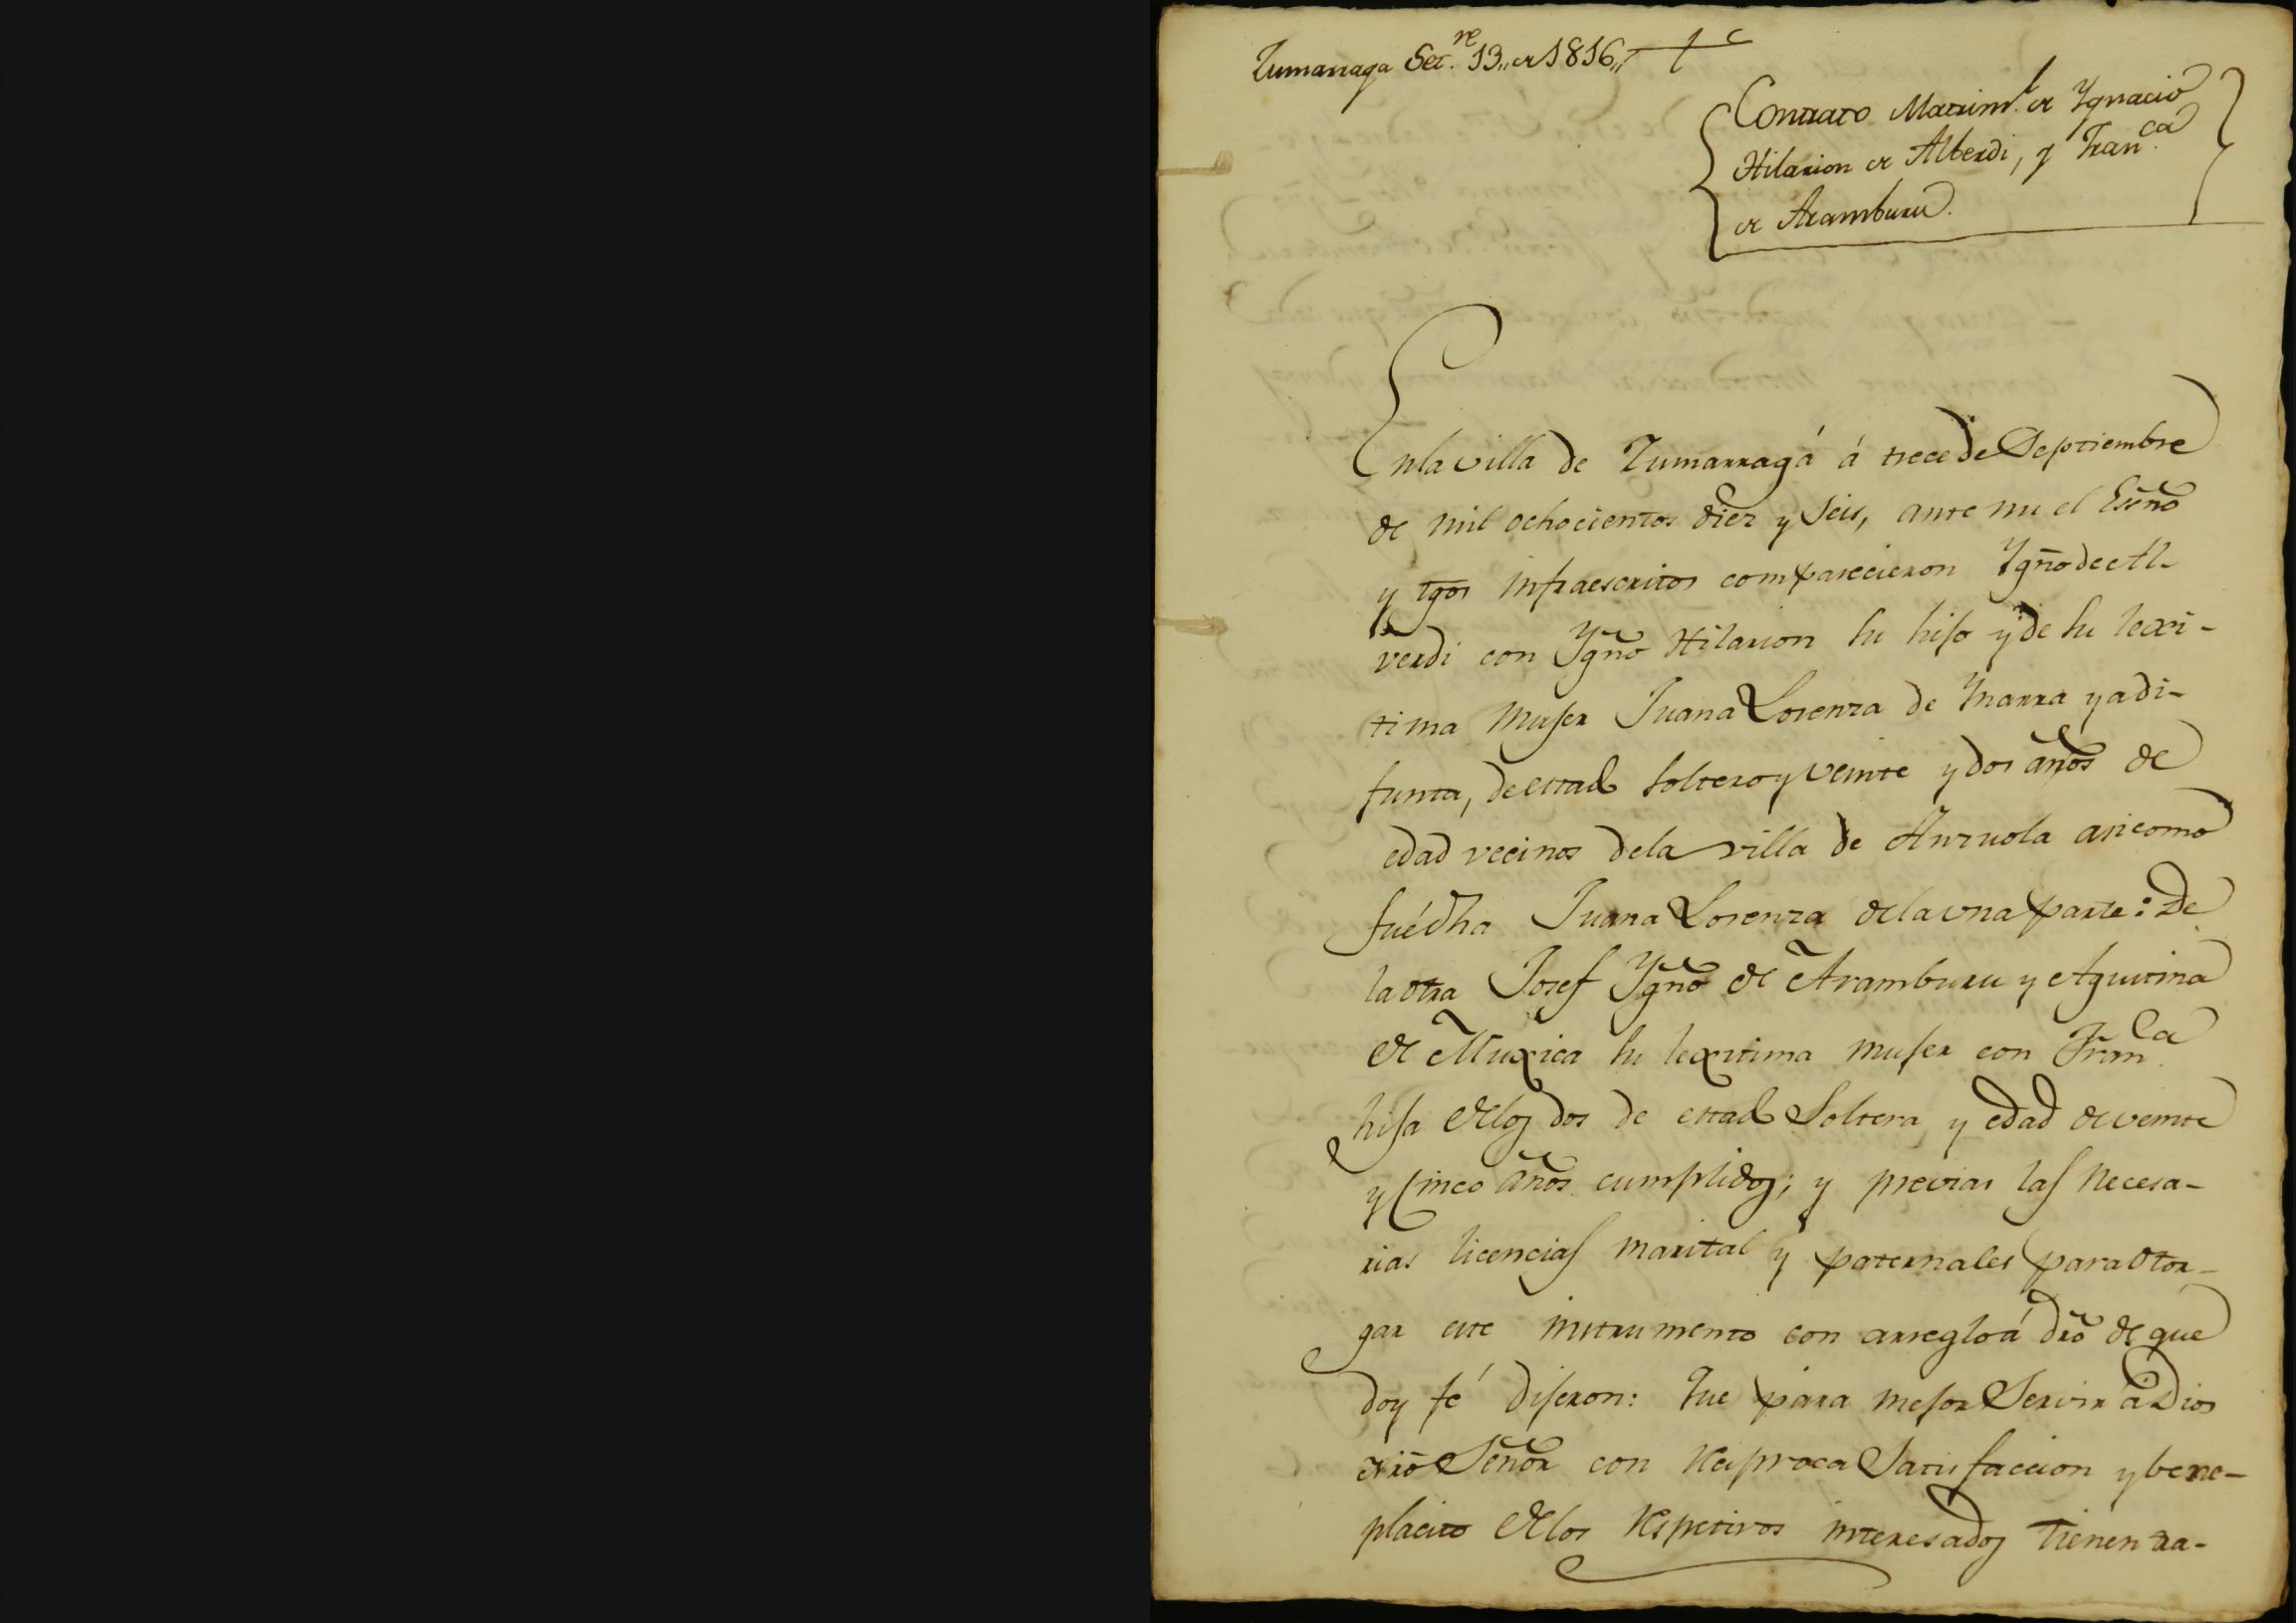 Zumarraga Set.re 13,, de 1816,,
Contrato Matrim.l de Ygnacio
Hilarion de Alberdi, y Fran.ca
de Aramburu.
En la villa de Zumarragá á trece de Septiembre
de mil ochocientos diez y seis, ante mi el Essño
y tgos infraescritos comparecieron Ygño de Al-
verdi con Ygño Hilarion su hijo y de su lexi-
tima mujer Juana Lorenza de Ynarra ya di-
funta, de estad soltero y veinte y dos años de
edad vecinos de la villa de Anzuola asi como
fué dha Juana Lorenza de la una parte: De
la otra Josef Ygño de Aramburu y Agustina
de Muxica su lexitima mujer con Fran.ca
hija de los dos de estad Soltera y edad de veinte
y cinco años cumplidos; y previas las necesa-
rias licencias marital y paternales para otor-
gar este instrumento con arreglo á dro de que
doy fé dijeron: Que para mejor Servir á Dios
nrō Señor con reciproca Satisfaccion y bene-
placito de los respetivos interesados tienen tra-